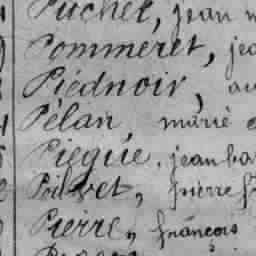 Puchet, jean
Pommeret, jea
Piédnoir, au
Pélan, marié
Piegüe, jean ba
Poilvet, pierre f
Pierre, françois